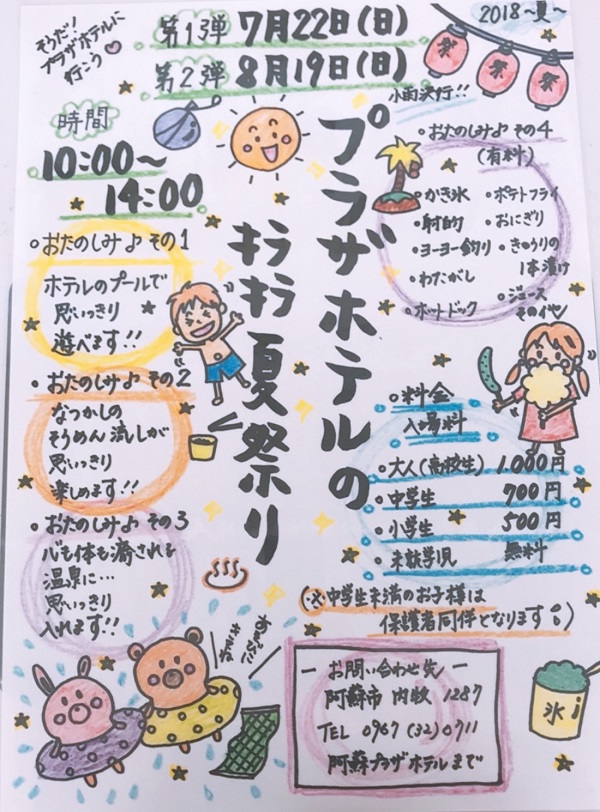 そうだ!
プラザホテルに
行こう
第1弾 7月22日(日)
第2弾 8月19日(日)
2018〜夏〜
祭
祭
祭
小雨決行!!
時間
10:00〜
14:00
プラザホテルの
キラキラ夏祭り
・おたのしみ♪その1
ホテルのプールで
思いっきり
遊べます!!
・おたのしみ♪その2
なつかしの
そうめん流しが
思いっきり
楽しめます!!
・おたのしみ♪その3
心も体も癒される
温泉に…
思いっきり
入れます!!
・おたのしみ♪その4
(有料)
・かき氷
・射的
・ヨーヨー釣り
・わたがし
・ホットドック
・ポテトフライ
・おにぎり
・きゅうりの
1本漬け
・ジュース
その他
・料金
入場料
・大人(高校生) 1,000円
・中学生 700円
・小学生 500円
・未就学児 無料
(※中学生未満のお子様は
保護者同伴となります)
あそびに
きてね
― お問い合わせ先 ―
阿蘇市 内牧 1287
TEL 0967 (32) 0711
阿蘇プラザホテルまで
氷